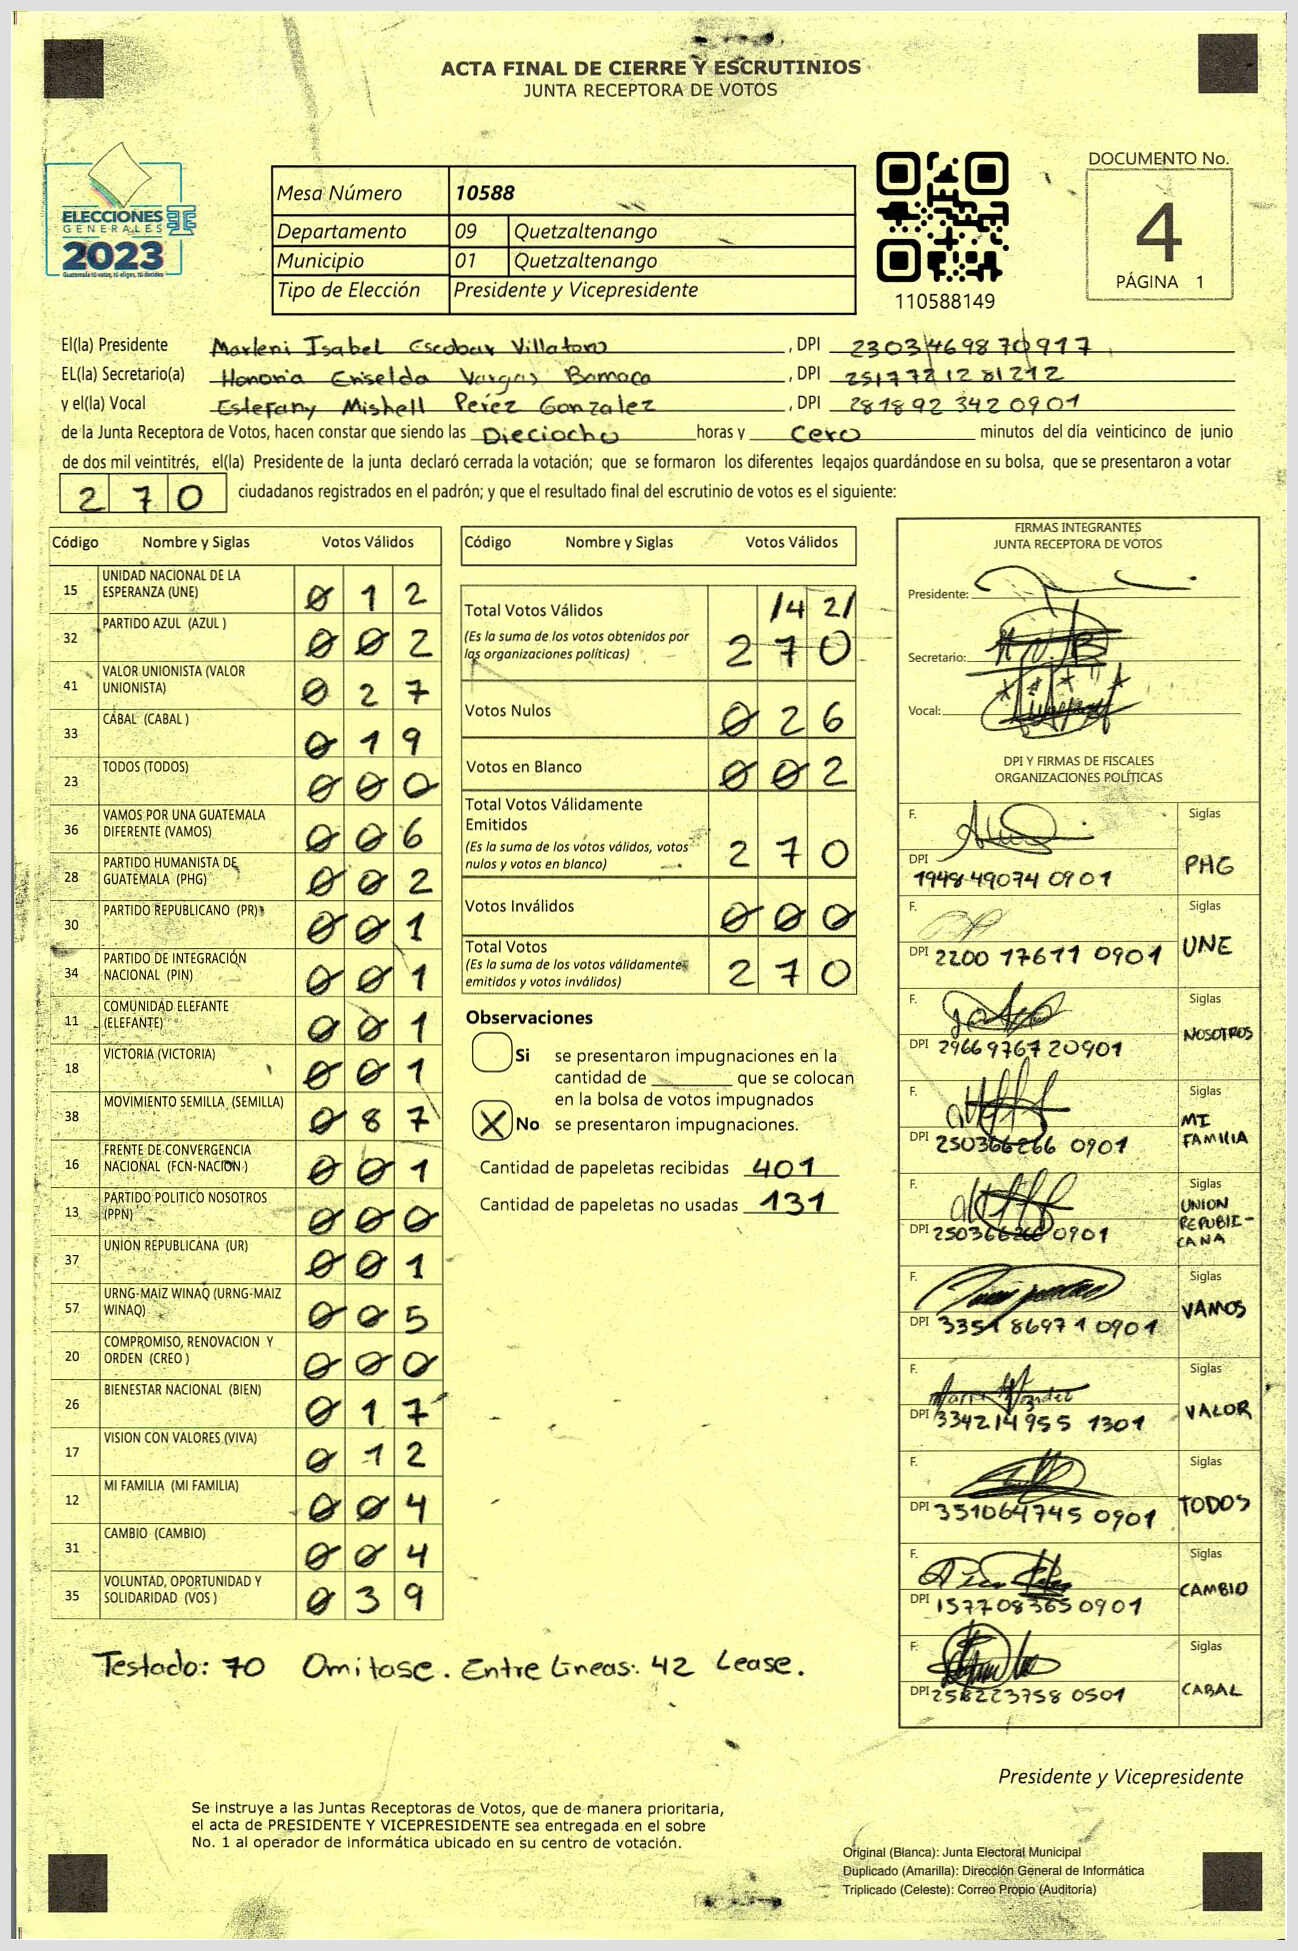 ACTA FINAL DE CIERRE Y ESCRUTINIOS
JUNTA RECEPTORA DE VOTOS
ELECCIONES
GENERALES
2023
Guatemala tú votas, tú eliges, tú decides
Mesa Número 10588
Departamento 09 Quetzaltenango
Municipio 01 Quetzaltenango
Tipo de Elección Presidente y Vicepresidente
110588149
DOCUMENTO No.
4
PÁGINA 1
El(la) Presidente Marleni Isabel Escobar Villatoro, DPI 2303469870917
EL(la) Secretario(a) Honoria Eriselda Vargas Bamaca, DPI 2517721281212
y el(la) Vocal Estefany Mishell Peréz Gonzalez, DPI 2818923420901
de la Junta Receptora de Votos, hacen constar que siendo las Dieciocho horas y Cero minutos del día veinticinco de junio
de dos mil veintitrés, el(la) Presidente de la junta declaró cerrada la votación; que se formaron los diferentes legajos guardándose en su bolsa, que se presentaron a votar
270 ciudadanos registrados en el padrón; y que el resultado final del escrutinio de votos es el siguiente:
Código Nombre y Siglas Votos Válidos
15 UNIDAD NACIONAL DE LA ESPERANZA (UNE) 012
32 PARTIDO AZUL (AZUL ) 002
41 VALOR UNIONISTA (VALOR UNIONISTA) 027
33 CABAL (CABAL ) 019
23 TODOS (TODOS) 000
36 VAMOS POR UNA GUATEMALA DIFERENTE (VAMOS) 006
28 PARTIDO HUMANISTA DE GUATEMALA (PHG) 002
30 PARTIDO REPUBLICANO (PR) 001
34 PARTIDO DE INTEGRACIÓN NACIONAL (PIN) 001
11 COMUNIDAD ELEFANTE (ELEFANTE) 001
18 VICTORIA (VICTORIA) 001
38 MOVIMIENTO SEMILLA (SEMILLA) 087
16 FRENTE DE CONVERGENCIA NACIONAL (FCN-NACION ) 001
13 PARTIDO POLITICO NOSOTROS (PPN) 000
37 UNION REPUBLICANA (UR) 001
57 URNG-MAIZ WINAQ (URNG-MAIZ WINAQ) 005
20 COMPROMISO, RENOVACION Y ORDEN (CREO ) 000
26 BIENESTAR NACIONAL (BIEN) 017
17 VISION CON VALORES (VIVA) 012
12 MI FAMILIA (MI FAMILIA) 004
31 CAMBIO (CAMBIO) 004
35 VOLUNTAD, OPORTUNIDAD Y SOLIDARIDAD (VOS ) 039
Testado: 70 Omitase. Entre Lineas: 42 Lease.
Código Nombre y Siglas Votos Válidos
Total Votos Válidos /42/
(Es la suma de los votos obtenidos por
las organizaciones políticas) 270
Votos Nulos 026
Votos en Blanco 002
Total Votos Válidamente
Emitidos
(Es la suma de los votos válidos, votos
nulos y votos en blanco) 270
Votos Inválidos 000
Total Votos
(Es la suma de los votos válidamente
emitidos y votos inválidos) 270
Observaciones
Si se presentaron impugnaciones en la
cantidad de ________ que se colocan
en la bolsa de votos impugnados
X No se presentaron impugnaciones.
Cantidad de papeletas recibidas 401
Cantidad de papeletas no usadas 131
FIRMAS INTEGRANTES
JUNTA RECEPTORA DE VOTOS
Presidente:
Secretario:
Vocal:
DPI Y FIRMAS DE FISCALES
ORGANIZACIONES POLÍTICAS
F. Siglas
DPI 1948 49074 0901 PHG
F. Siglas
DPI 2200 17611 0901 UNE
F. Siglas
DPI 2966976720901 NOSOTROS
F. Siglas
DPI 250366266 0901 MI FAMILIA
F. Siglas
DPI 250366266 0901 UNION REPUBLICANA
F. Siglas
DPI 3351 86971 0901 VAMOS
F. Siglas
DPI 334214955 1301 VALOR
F. Siglas
DPI 351064745 0901 TODOS
F. Siglas
DPI 1577083650901 CAMBIO
F. Siglas
DPI 258223758 0501 CABAL
Presidente y Vicepresidente
Se instruye a las Juntas Receptoras de Votos, que de manera prioritaria,
el acta de PRESIDENTE Y VICEPRESIDENTE sea entregada en el sobre
No. 1 al operador de informática ubicado en su centro de votación.
Original (Blanca): Junta Electoral Municipal
Duplicado (Amarilla): Dirección General de Informática
Triplicado (Celeste): Correo Propio (Auditoría)